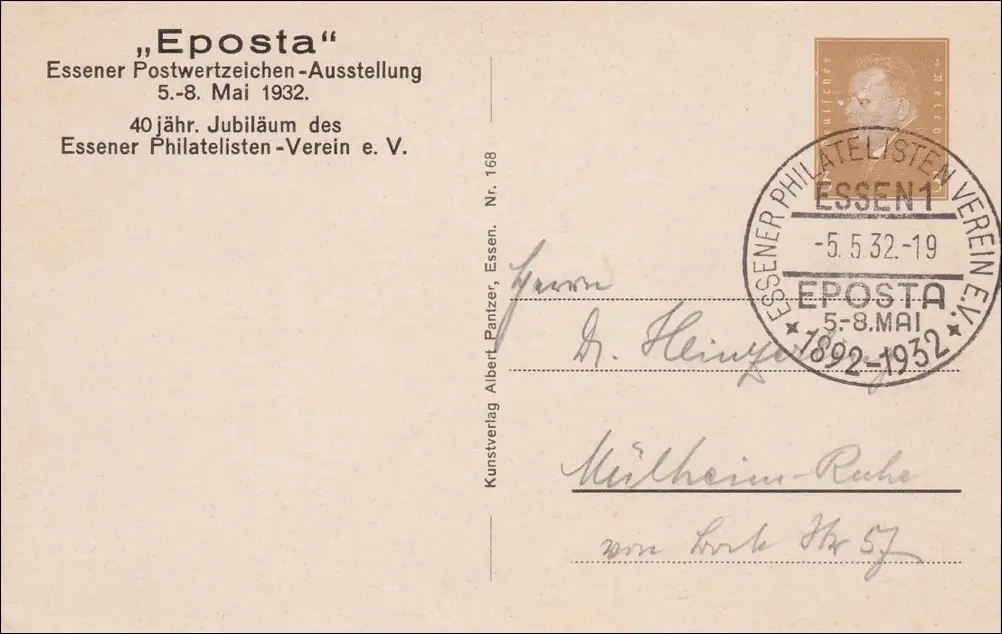 „Eposta“
Essener Postwertzeichen-Ausstellung
5.-8. Mai 1932.
40jähr. Jubiläum des
Essener Philatelisten-Verein e. V.
Kunstverlag Albert Pantzer, Essen. Nr. 168
Deutsches Reich
ESSENER PHILATELISTEN VEREIN E.V.
ESSEN 1
-5.5.32.-19
EPOSTA
5.-8. MAI
1892-1932
Herrn
Dr.
Mülheim-Ruhr
von Bock Str 57